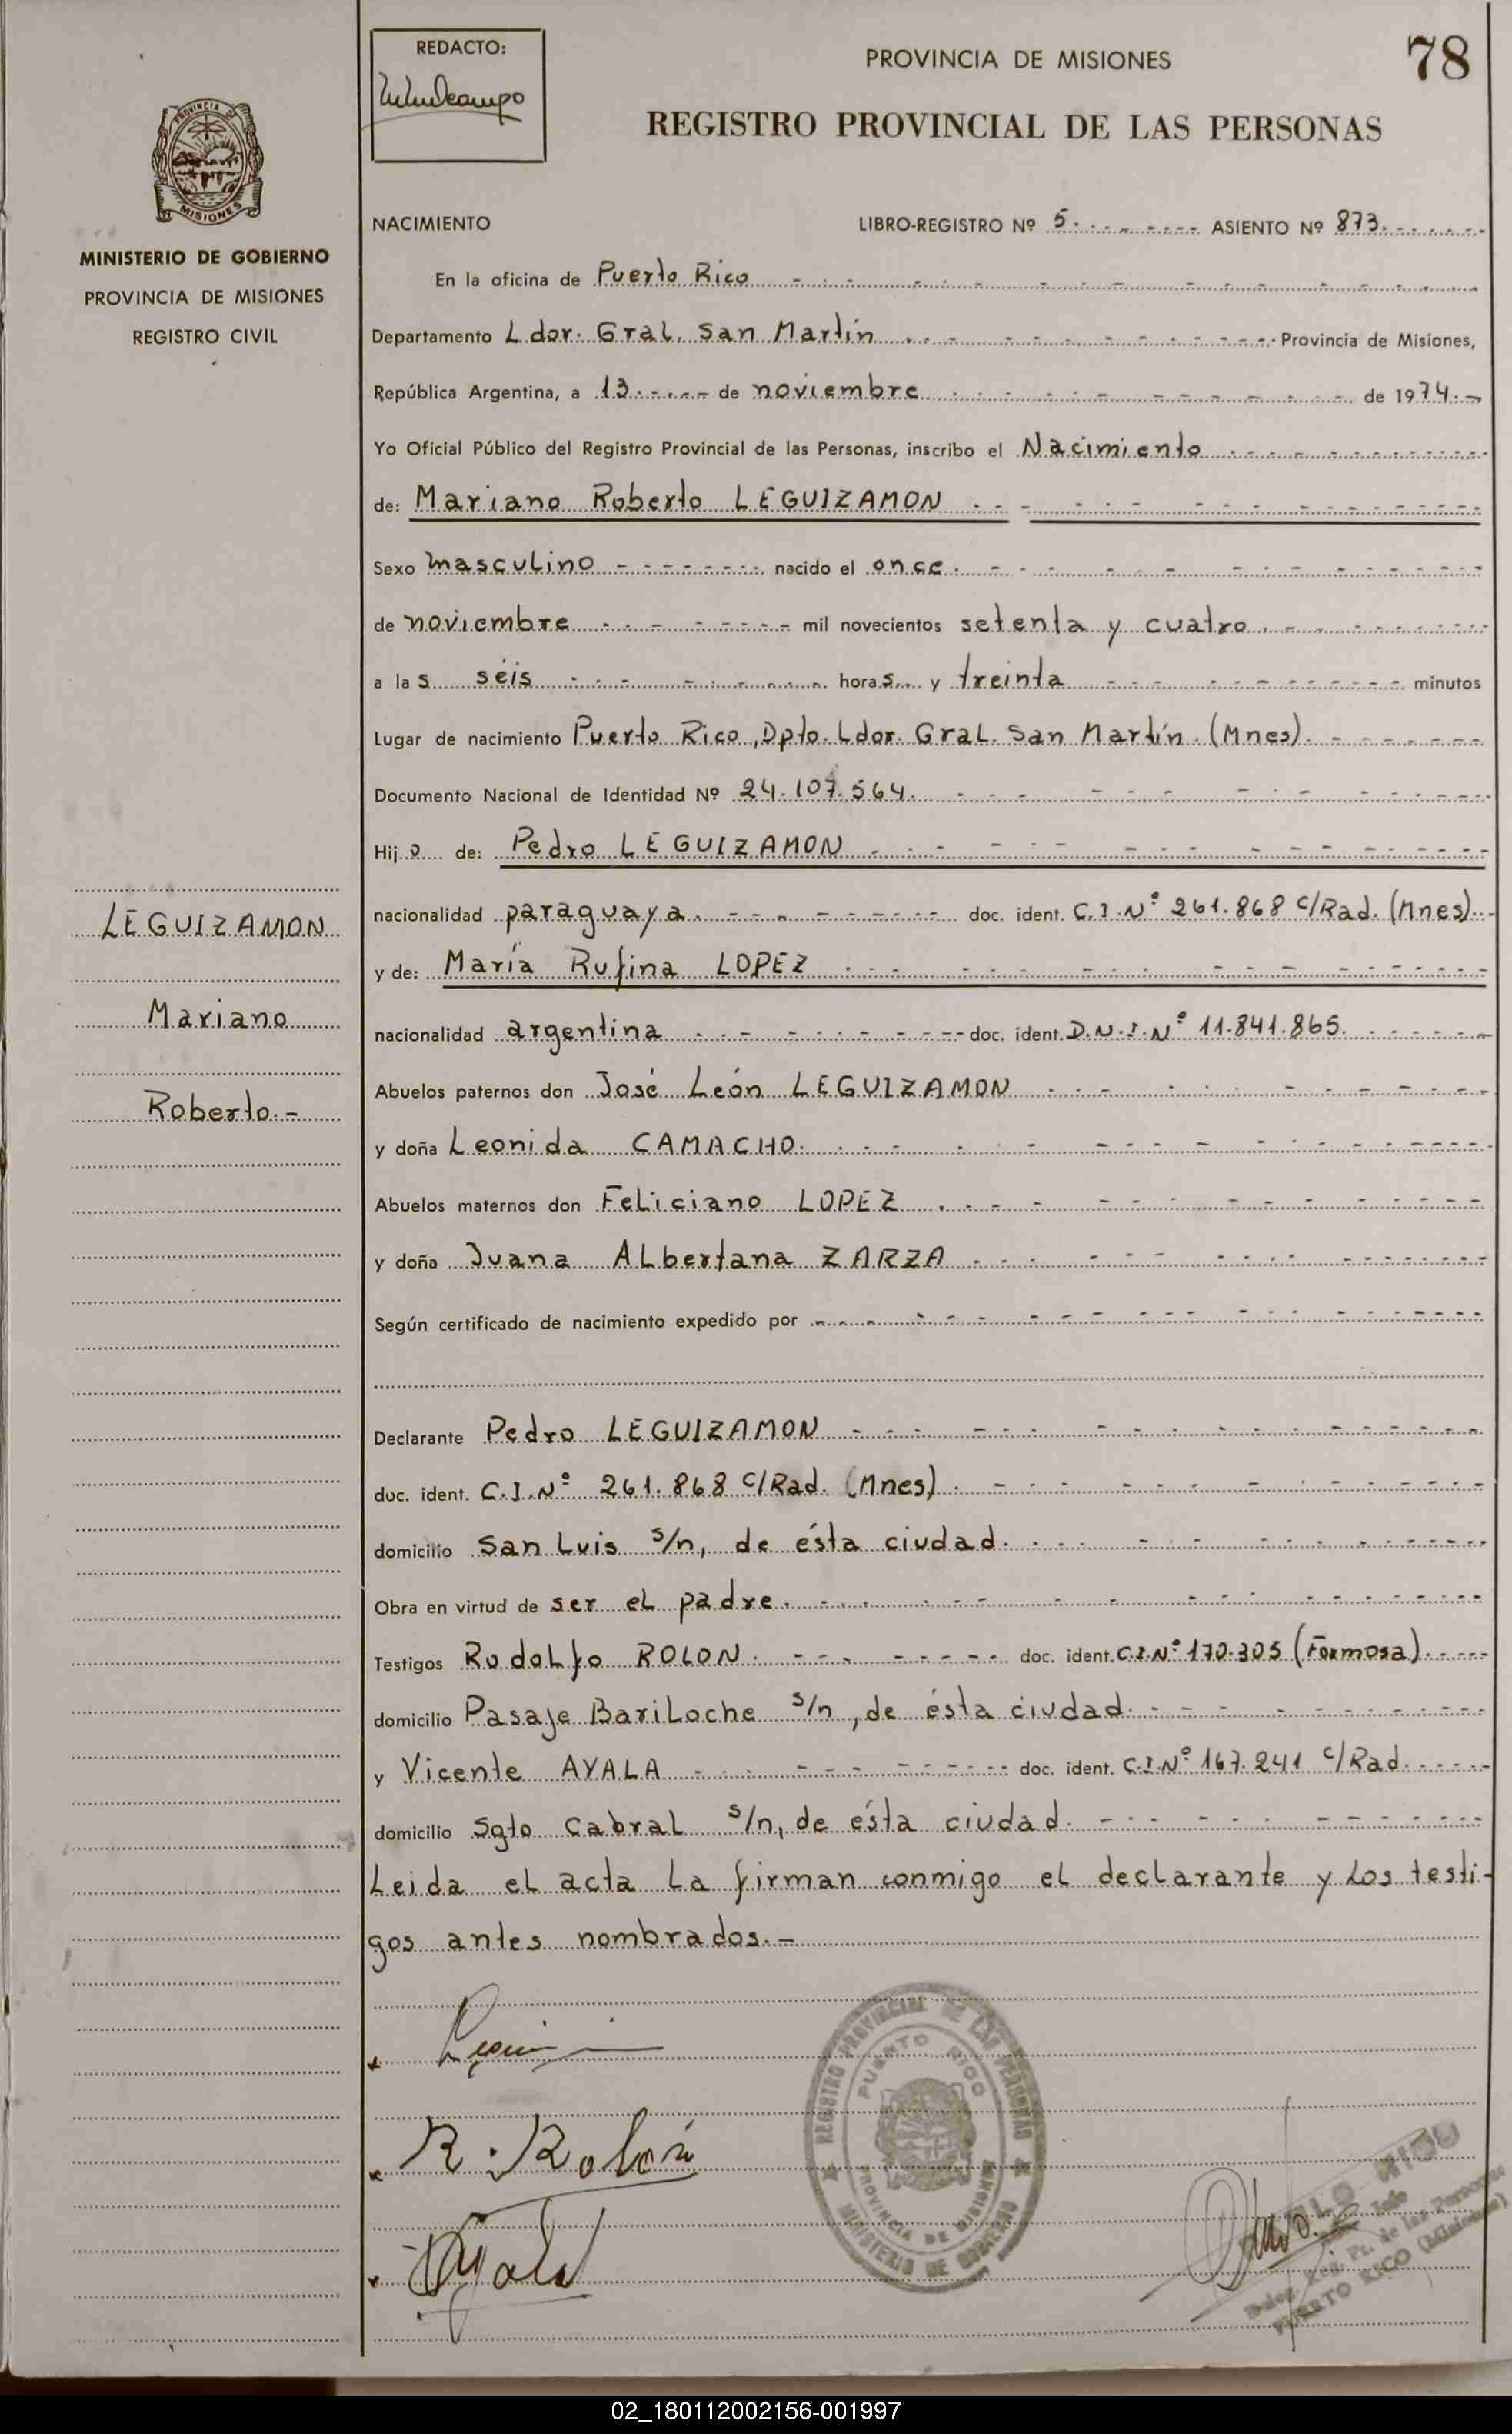 REDACTO:
PROVINCIA DE MISIONES
78
REGISTRO PROVINCIAL DE LAS PERSONAS
PROVINCIA DE
MISIONES
MINISTERIO DE GOBIERNO
PROVINCIA DE MISIONES
REGISTRO CIVIL
NACIMIENTO LIBRO-REGISTRO Nº 5. ASIENTO Nº 873.
En la oficina de Puerto Rico
Departamento Ldor. Gral. San Martín Provincia de Misiones,
República Argentina, a 13 de noviembre de 1974.
Yo Oficial Público del Registro Provincial de las Personas, inscribo el Nacimiento
de: Mariano Roberto LEGUIZAMON
Sexo masculino nacido el once
de noviembre mil novecientos setenta y cuatro
a las séis horas y treinta minutos
Lugar de nacimiento Puerto Rico, Dpto. Ldor. Gral. San Martín. (Mnes).
Documento Nacional de Identidad Nº 24.107.564.
Hijo de: Pedro LEGUIZAMON
nacionalidad paraguaya doc. ident. C.I.Nº 261.868 C/Rad. (Mnes).
y de: María Rufina LOPEZ
nacionalidad argentina doc. ident. D.N.I.Nº 11.841.865.
Abuelos paternos don José León LEGUIZAMON
y doña Leonida CAMACHO.
Abuelos maternos don Feliciano LOPEZ
y doña Juana Albertana ZARZA
Según certificado de nacimiento expedido por
Declarante Pedro LEGUIZAMON
doc. ident. C.I.Nº 261.868 C/Rad. (Mnes).
domicilio San Luis s/n, de ésta ciudad.
Obra en virtud de ser el padre.
Testigos Rodolfo ROLON. doc. ident. C.I.Nº 170.305 (Formosa).
domicilio Pasaje Bariloche s/n, de ésta ciudad.
y Vicente AYALA doc. ident. C.I.Nº 167.241 C/Rad.
domicilio Sgto Cabral s/n, de ésta ciudad.
Leida el acta la firman conmigo el declarante y los testi-
gos antes nombrados.-
LEGUIZAMON
Mariano
Roberto.-
R. Rolón
Ayala
REGISTRO PROVINCIAL DE LAS PERSONAS
PUERTO RICO
PROVINCIA DE MISIONES
MINISTERIO DE GOBIERNO
Jefe
Deleg. Reg. Pr. de las Personas
PUERTO RICO (Misiones)
02_180112002156-001997